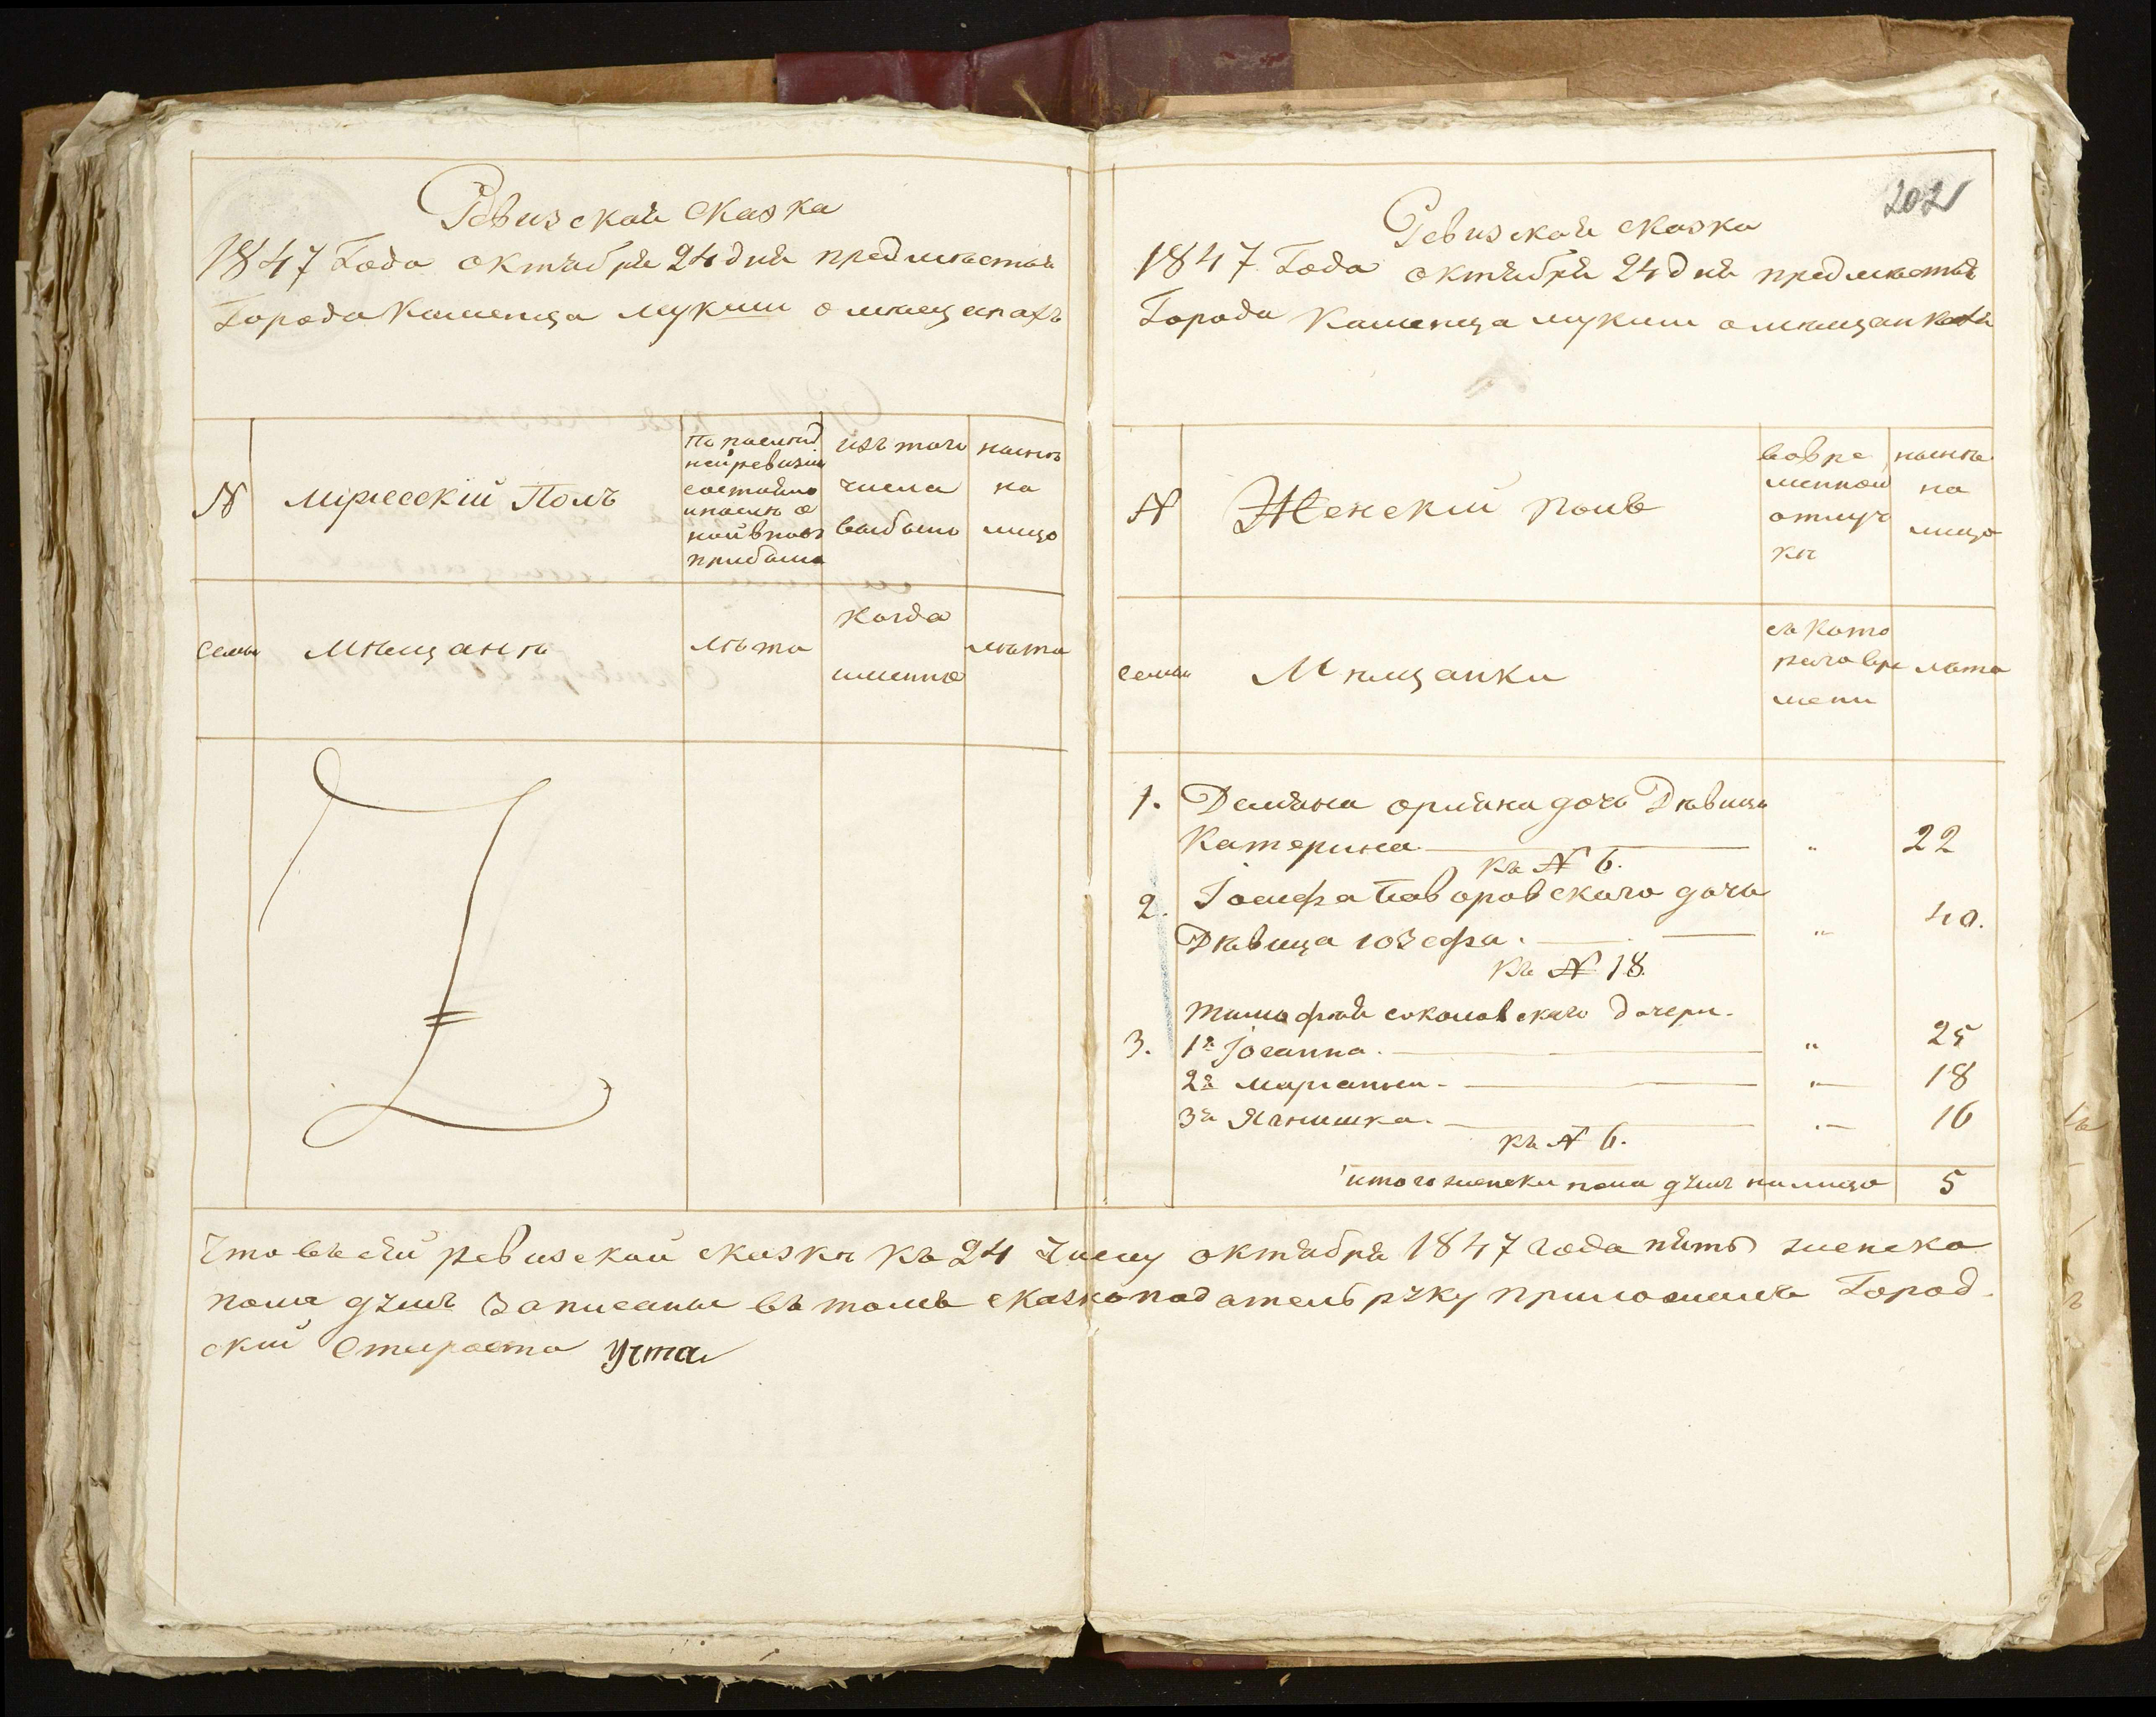 Ревизская сказка
1847 Года октября 24 дня предместья
Города Каменца мукши о мещанахъ
N
Мужескій Полъ
По послѣд
ней ревизіи
состояло
и после о
ной вновь
прибыло
изъ того
числа
выбыло
нынѣ
на
лицо
семьи
Мѣщанѣ
лѣта
Когда
именно
лѣта
202
Ревизская сказка
1847 Года октября 24 дня предместья
Города Каменца мукши о мѣщанкахъ
N
Женскій полъ
вовре
менной
отлуч
кѣ
нынѣ
на
лицо
семьи
Мѣщанки
съ Кото
раго вре
мени
лѣта
1. Демяна орляка дочь Дѣвица
Катерина — „ 22
къ N 6.
2. Іосифа Яворовского дочь
Дѣвица юзефа. — „ 40.
къ N 18
тимофтей соколовскаго дочери.
3. 1я Іоанна. — „ 25
2я Маріанна — „ 18
3я Ягнишка. — „ 16
къ N 6.
итого женска пола душъ на лицо 5
Что въ сей ревизской сказкѣ къ 24 числу октября 1847 года пять женска
пола душъ записаны въ томъ сказкоподатель руку приложилъ Город-
скій Староста